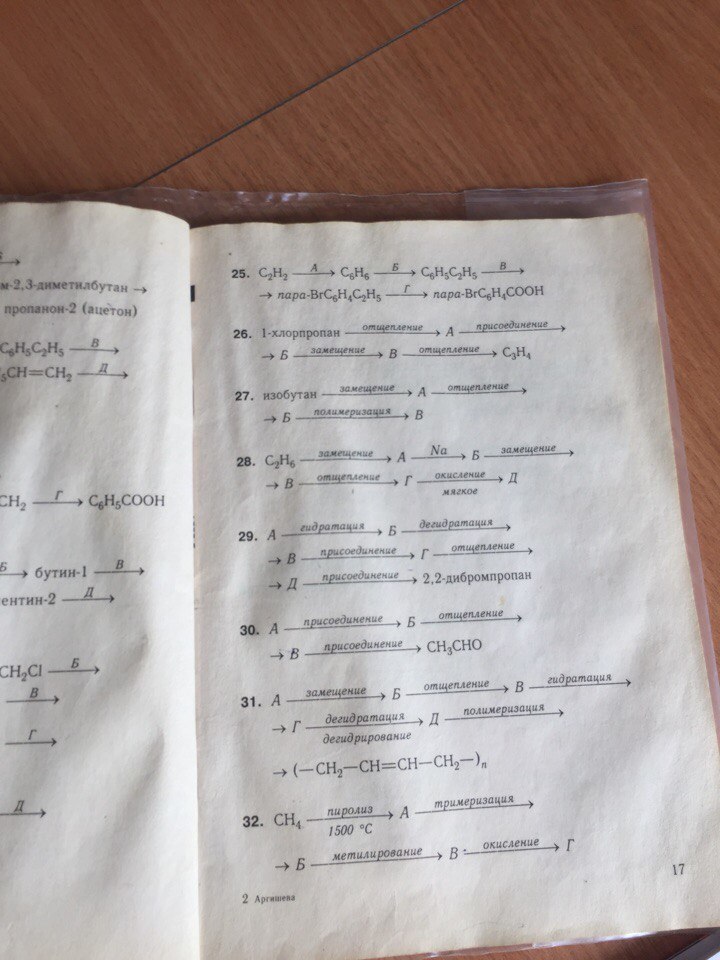 м-2,3-диметилбутан →
пропанон-2 (ацетон)
C₆H₅C₂H₅ —В→
CH=CH₂ —Д→
CH₂ —Г→ C₆H₅COOH
Б→ бутин-1 —В→
ентин-2 —Д→
CH₂Cl —Б→
В→
Г→
Д→
25. C₂H₂ —А→ C₆H₆ —Б→ C₆H₅C₂H₅ —В→
→ пара-BrC₆H₄C₂H₅ —Г→ пара-BrC₆H₄COOH
26. 1-хлорпропан —отщепление→ А —присоединение→
→ Б —замещение→ В —отщепление→ C₃H₄
27. изобутан —замещение→ А —отщепление→
→ Б —полимеризация→ В
28. C₂H₆ —замещение→ А —Na→ Б —замещение→
→ В —отщепление→ Г —окисление→ Д
мягкое
29. А —гидратация→ Б —дегидратация→
→ В —присоединение→ Г —отщепление→
→ Д —присоединение→ 2,2-дибромпропан
30. А —присоединение→ Б —отщепление→
→ В —присоединение→ CH₃CHO
31. А —замещение→ Б —отщепление→ В —гидратация→
→ Г —дегидратация→ Д —полимеризация→
дегидрирование
→ (—CH₂—CH=CH—CH₂—)ₙ
32. CH₄ —пиролиз→ А —тримеризация→
1500 °С
→ Б —метилирование→ В —окисление→ Г
17
2 Аргишева